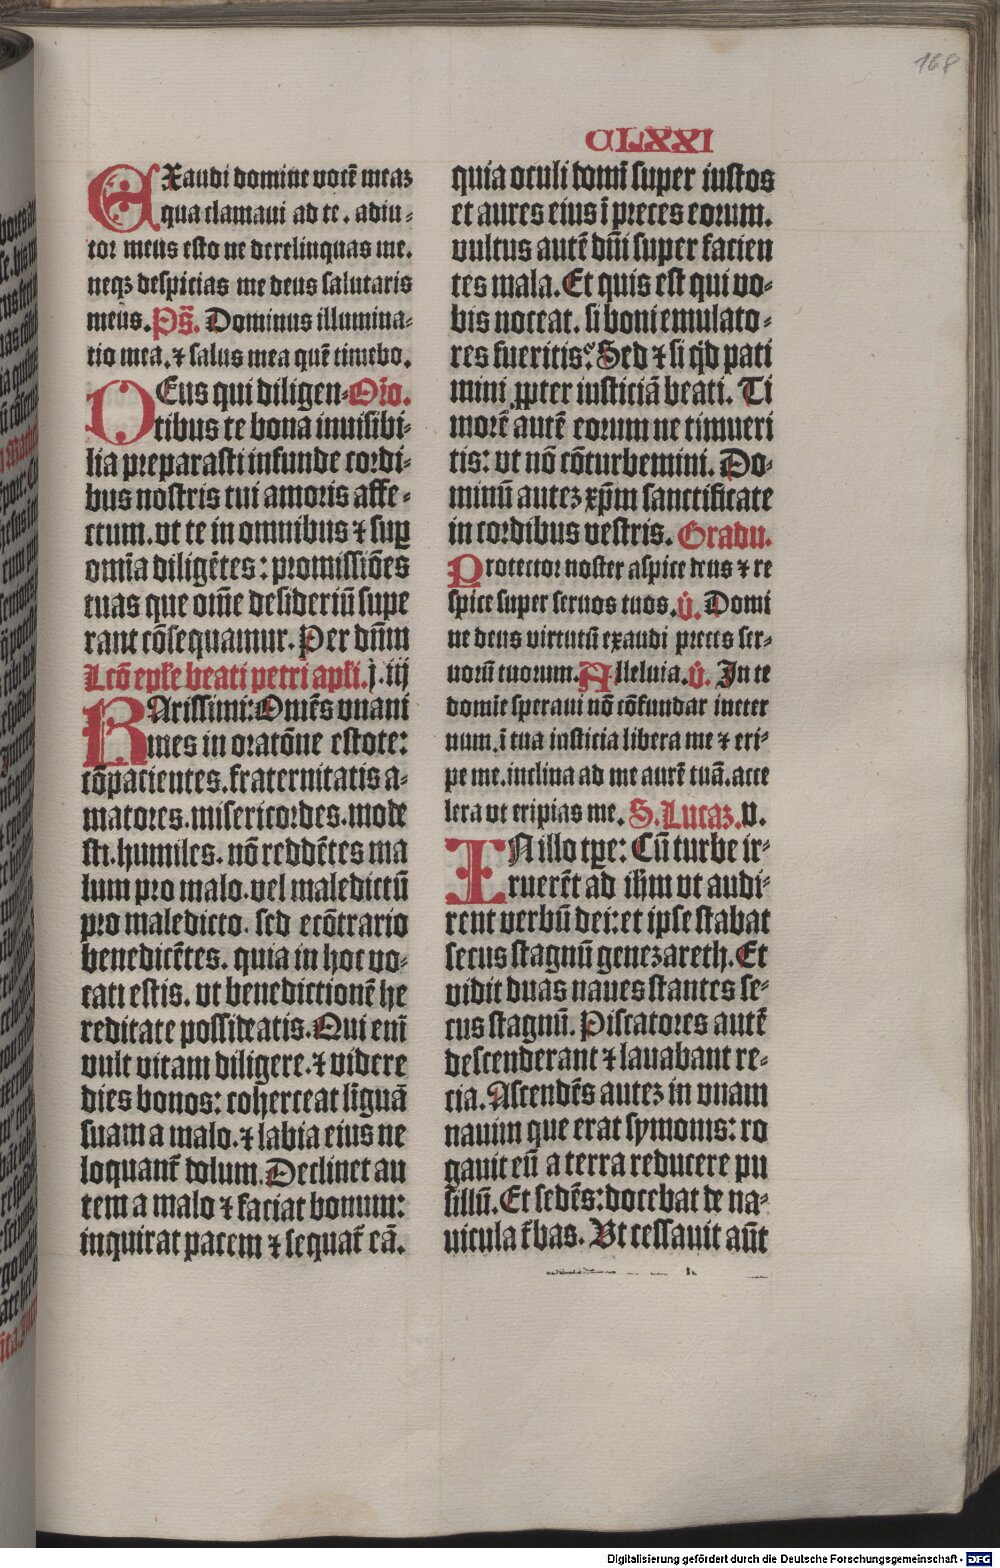 168
CLXXI
EXaudi domine vocē meaz
qua clamaui ad te. adiu-
tor meus esto ne derelinquas me.
neqz despicias me deus salutaris
meus. Ps̄. Dominus illumina-
tio mea. ⁊ salus mea quē timebo.
DEus qui diligen- Orō.
tibus te bona inuisibi-
lia preparasti infunde cordi-
bus nostris tui amoris affe-
ctum. vt te in omnibus ⁊ suꝑ
omīa diligētes: promissiōes
tuas que om̄e desideriū supe
rant cōsequamur. Per dn̄m
Lctō epl̄e beati petri apl̄i. j. iij
KArissimi: Omēs vnani
mes in oratōne estote:
cōpacientes. fraternitatis a-
matores. misericordes. mode
sti. humiles. nō reddētes ma
lum pro malo. vel maledictū
pro maledicto. sed ecōtrario
benedicētes. quia in hoc vo-
cati estis. vt benedictionē he
reditate possideatis. Qui enī
vult vitam diligere. ⁊ videre
dies bonos: coherceat liguā
suam a malo. ⁊ labia eius ne
loquant̄ dolum. Declinet au
tem a malo ⁊ faciat bonum:
inquirat pacem ⁊ sequat̄ eā.
quia oculi domī super iustos
et aures eius ī preces eorum.
vultus autē dn̄i super facien
tes mala. Et quis est qui vo-
bis noceat. si boni emulato-
res fueritis? Sed ⁊ si qd̄ pati
mini ꝓpter iusticiā beati. Ti
morē autē eorum ne timueri
tis: vt nō cōturbemini. Do-
minū autez xp̄m sanctificate
in cordibus vestris. Gradu.
Protector noster aspice deus ⁊ re
spice super seruos tuos. v̄. Domi
ne deus virtutū exaudi preces ser-
uorū tuorum. Alleluia. v̄. In te
domie speraui nō cōfundar ineter
num. ī tua iusticia libera me ⁊ eri-
pe me. inclina ad me aurē tuā. acce
lera vt eripias me. S. Lucaz. v.
IN illo tꝑe: Cū turbe ir-
ruerēt ad ihm̄ vt audi-
rent verbū dei: et ipse stabat
secus stagnū genezareth. Et
vidit duas naues stantes se-
cus stagnū. Piscatores autē
descenderant ⁊ lauabant re-
cia. Ascendēs autez in vnam
nauim que erat symonis: ro
gauit eū a terra reducere pu
sillū. Et sedēs: docebat de na-
uicula t̄bas. Vt cessauit aūt
Digitalisierung gefördert durch die Deutsche Forschungsgemeinschaft - DFG